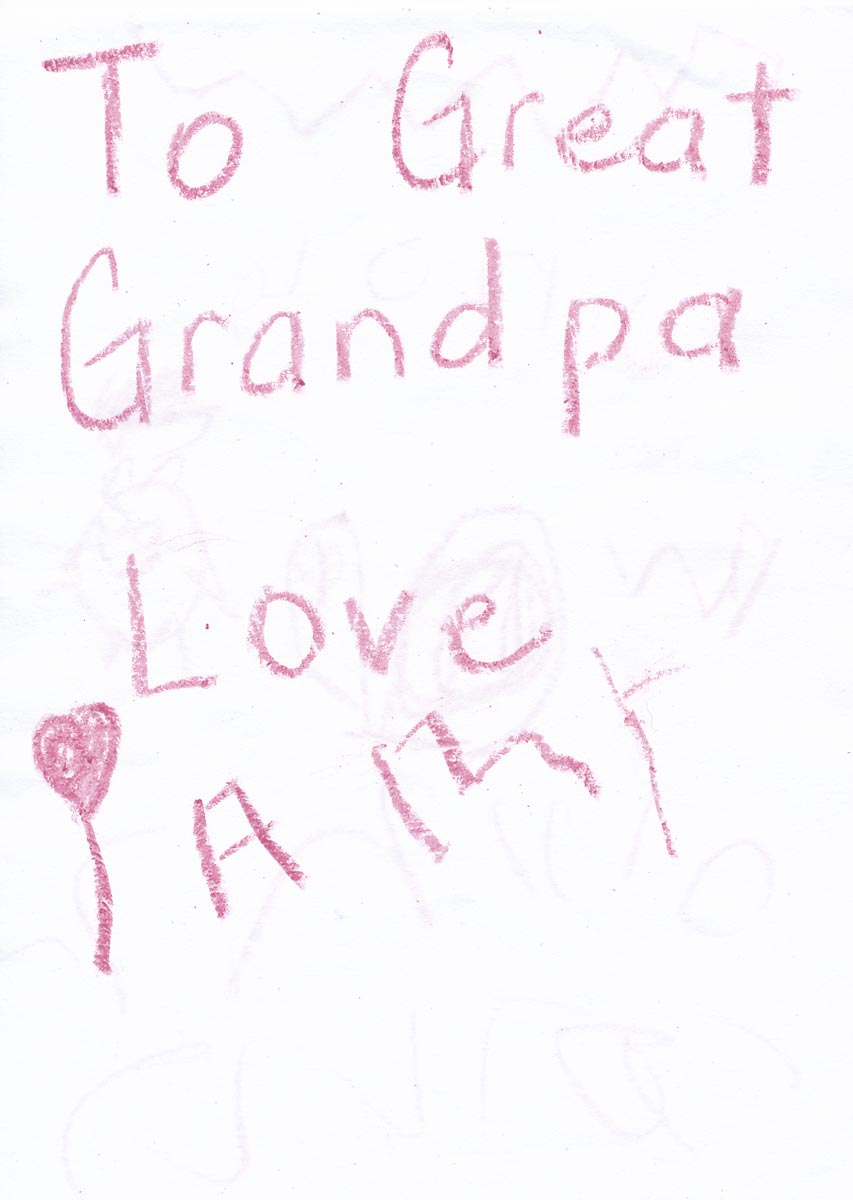 To Great
Grandpa
Love
AMY